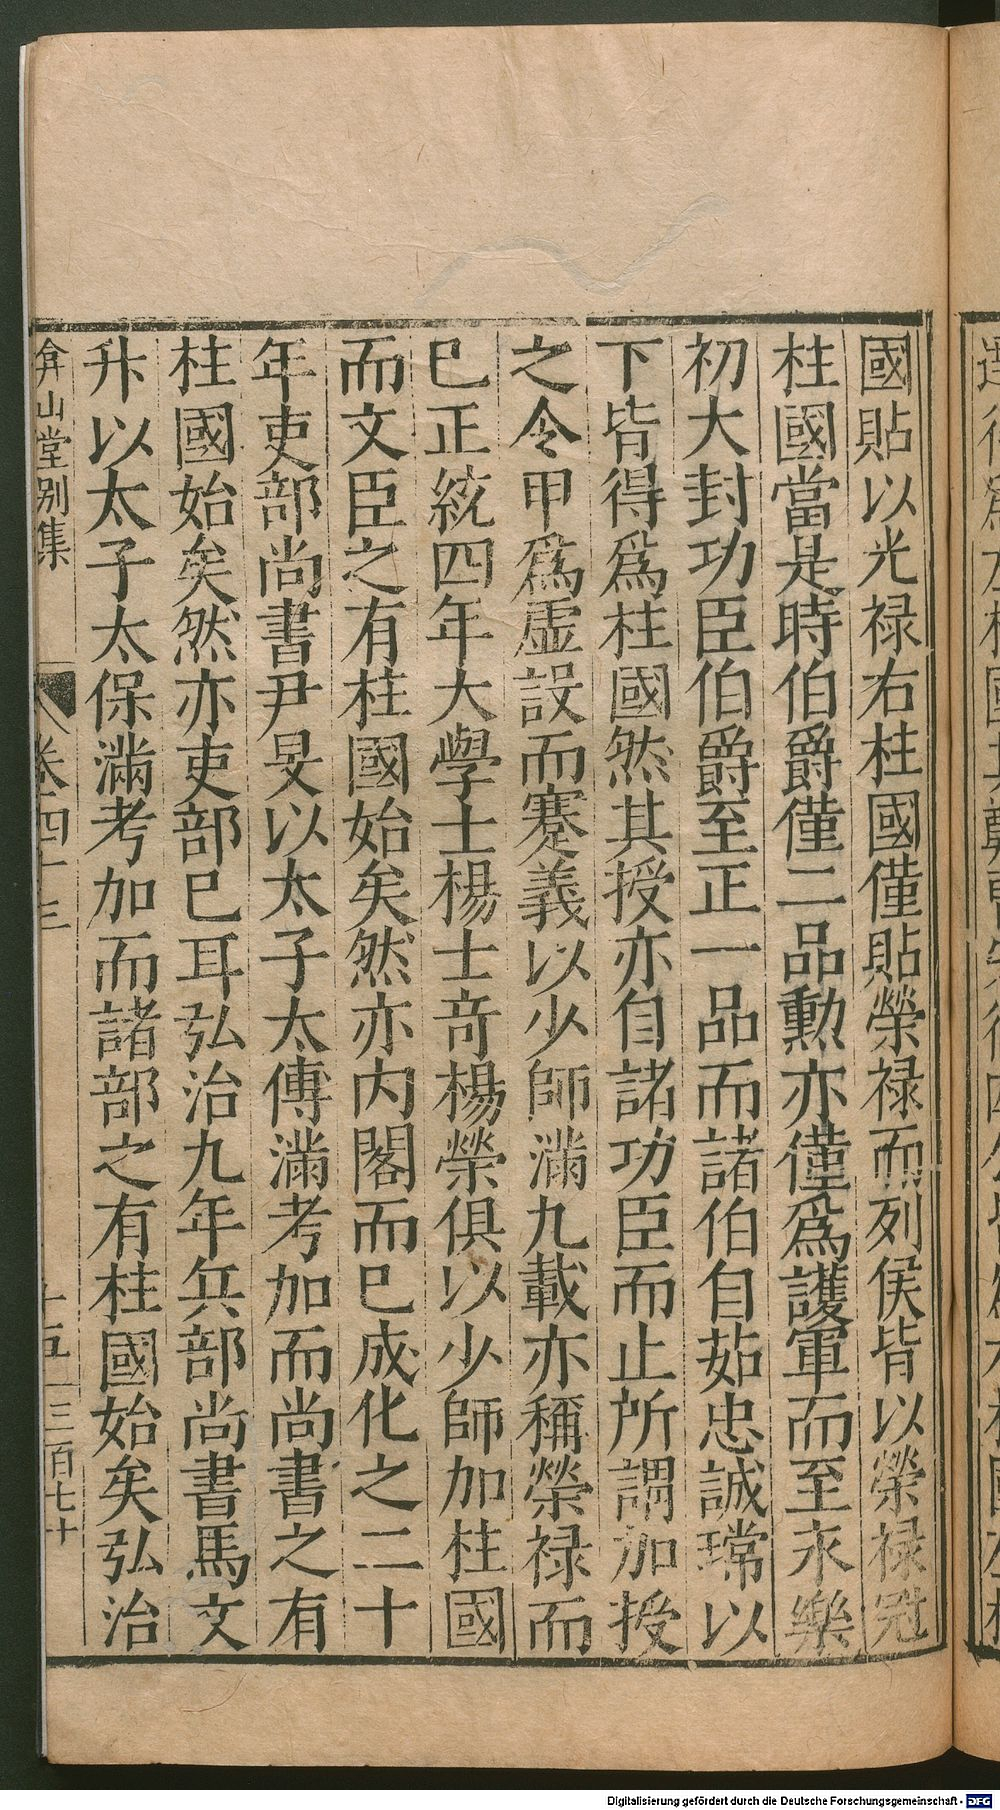 國貼以光禄右柱國僅貼榮禄而列侯皆以榮禄冠
柱國當是時伯爵僅二品勲亦僅爲護軍而至永樂
初大封功臣伯爵至正一品而諸伯自茹忠誠瑺以
下皆得爲柱國然其授亦自諸功臣而止所謂加授
之令甲爲虚設而蹇義以少師滿九載亦稱榮禄而
已正統四年大學士楊士竒楊榮俱以少師加柱國
而文臣之有柱國始矣然亦内閣而已成化之二十
年吏部尚書尹旻以太子太傅滿考加而尚書之有
柱國始矣然亦吏部已耳弘治九年兵部尚書馬文
升以太子太保滿考加而諸部之有柱國始矣弘治
弇山堂别集
卷四十三
十五
三百七十
Digitalisierung gefördert durch die Deutsche Forschungsgemeinschaft - DFG